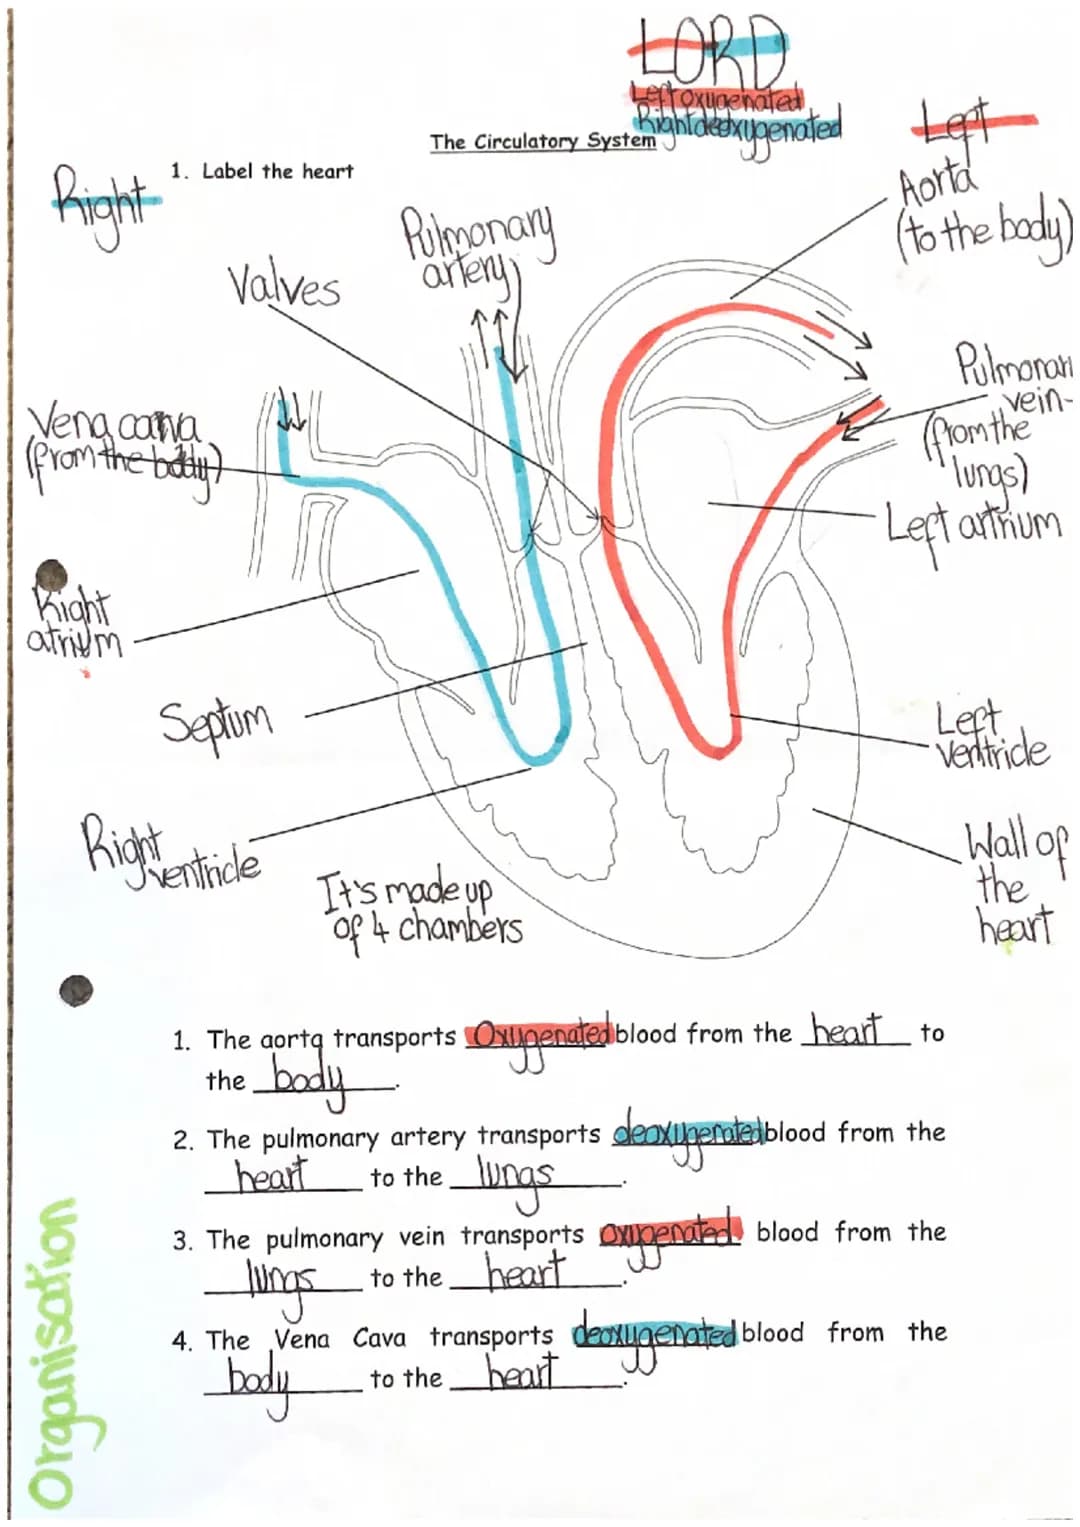 LORD
Left oxygenated
Right deoxygenated
Left
The Circulatory System
1. Label the heart
Right
Aorta
(to the body)
Pulmonary
artery
Valves
Pulmonar
vein-
(from the
lungs)
Vena cava
(from the body)
Left artrium
Right
atrium
Septum
Left
ventricle
Right
ventricle
Wall of
the
heart
It's made up
of 4 chambers
1. The aorta transports Oxygenated blood from the heart to
the body.
2. The pulmonary artery transports deoxygenated blood from the
heart to the lungs.
3. The pulmonary vein transports oxygenated blood from the
lungs to the heart.
4. The Vena Cava transports deoxygenated blood from the
body to the heart.
Organisation